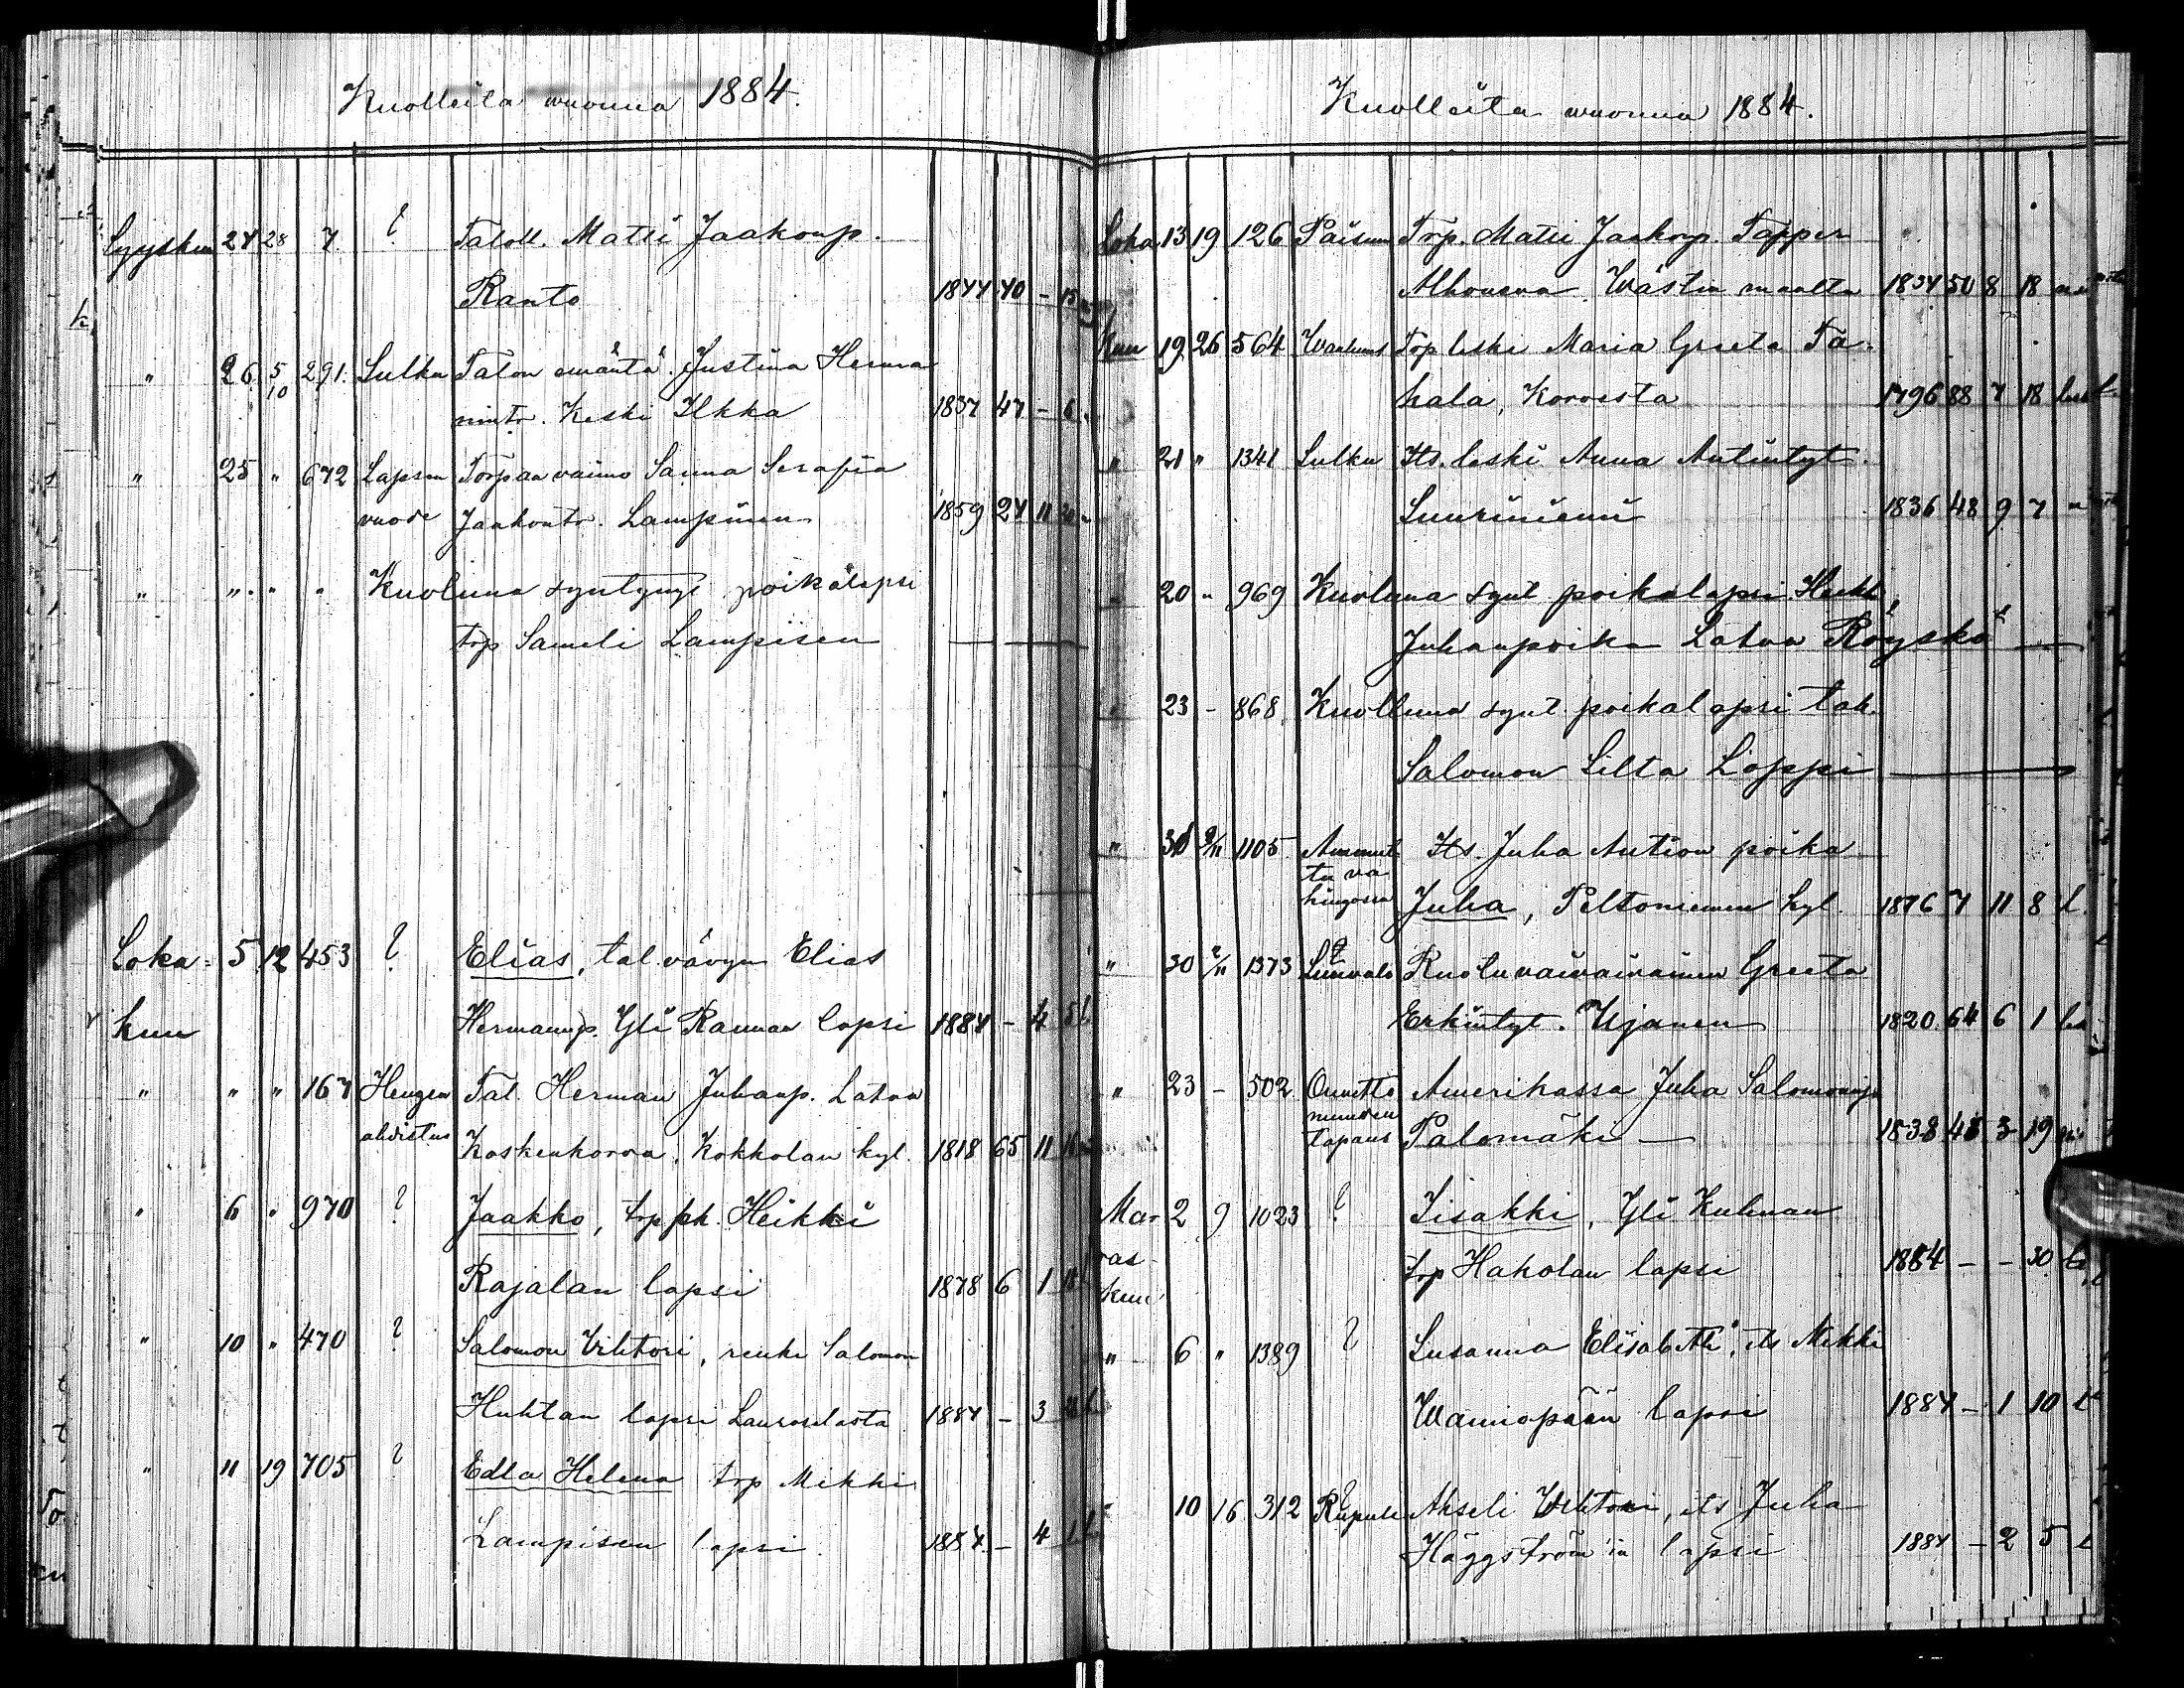 Kuolleita wuonna 1884.
Syyskuu 24 28 7 ? Taloll. Matti Jaakonp.
Ranto 1844 40 - 15
" 26 5/10 291. Sulku Talon emäntä Justina Herman
nintr. Keski Ilkka 1837 47 - 6
" 25 " 672 Lapsen Torpan vaimo Sanna Serafia
vuode Jaakontr. Lampinen 1859 24 11 30
" " " " Kuolluna syntynyt poikalapsi
trp Sameli Lampisen
Loka= 5 12 453 ? Elias, tal. vävyn Elias
kuu Hermannp. Yli Rannan lapsi 1884 - 4 5 l
" " " 167 Hengen Tal. Herman Juhanp. Latva
ahdistus Koskenkorva, Kokkolan kyl. 1818 65 11
" 6 " 970 ? Jaakko, trp ph. Heikki
Rajalan lapsi 1878 6 1
" 10 " 470 ? Salomon Vihtori, renki Salomon
Huhtan lapsi Lauroselasta 1884 - 3
" 11 19 705 ? Edla Helena trp Mikki
Lampisen lapsi 1884 - 4
Kuolleita wuonna 1884.
Loka 13 19 126 Paisum Trp. Matti Jaakonp. Tapper
Alhonena, Wästin maalta 1834 50 8 18
Kuu 19 26 564 Wanhuus Trp leski Maria Greeta Ta=
hala, Korvesta 1796 88 7 18 lesk
" 21 " 1341 Sulku Its. leski Anna Antintyt.
Suuriniemi 1836 48 9 7
" 20 " 969 Kuolluna synt poikalapsi Heikk
Juhanpoika Latva Röyskö
23 - 868 Kuolluna synt poikalapsi tal.
Salomon Silta Loppi
" 30 2/11 1105 Ammut Its. Juha Antion poika
tu va
hingossa Juha, Peltoniemen kyl. 1876 7 11 8 l.
" 30 2/11 1373 Ruotuvaiwainen Greeta
Erkintyt. Ujanen 1820 64 6 1
" 23 - 502 Onnetto Amerikassa Juha Salomoninp
muuden
tapaus Palomäki 1838 45 3 19
Mar 2 9 1023 ? Iisakki, Yli Kuhnan
ras-
kuu trp Hakolan lapsi 1884 - - 30
" 6 " 1389 ? Susanna Elisabeth, its Mikki
Wainiopään lapsi 1884 - 1 10
10 16 312 Rupuli Akseli Vihtori, its Juha
Häggström'in lapsi 1884 - 2 5